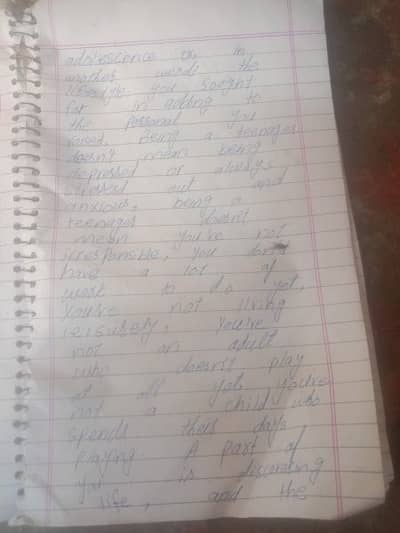 adolescence or in
another words the
strength you sought
for in adding to
the personal you
voiced. Being a teenager
doesn't mean being
depressed or always
stressed out and
anxious, being a
teenager doesn't
mean you're not
irresponsible, you don't
have a lot of
work to do yet,
you're not living
leisurely, you're
not an adult
who doesn't play
at all yet you're
not a child who
spends their days
playing. A part of
you is discovering
life, and the